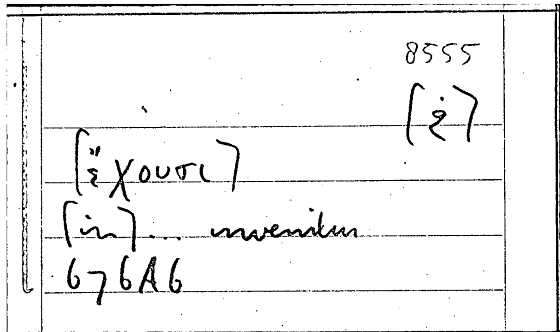 8555
[ἐ]
[ἔχουσι]
[in]... invenitur
676A6